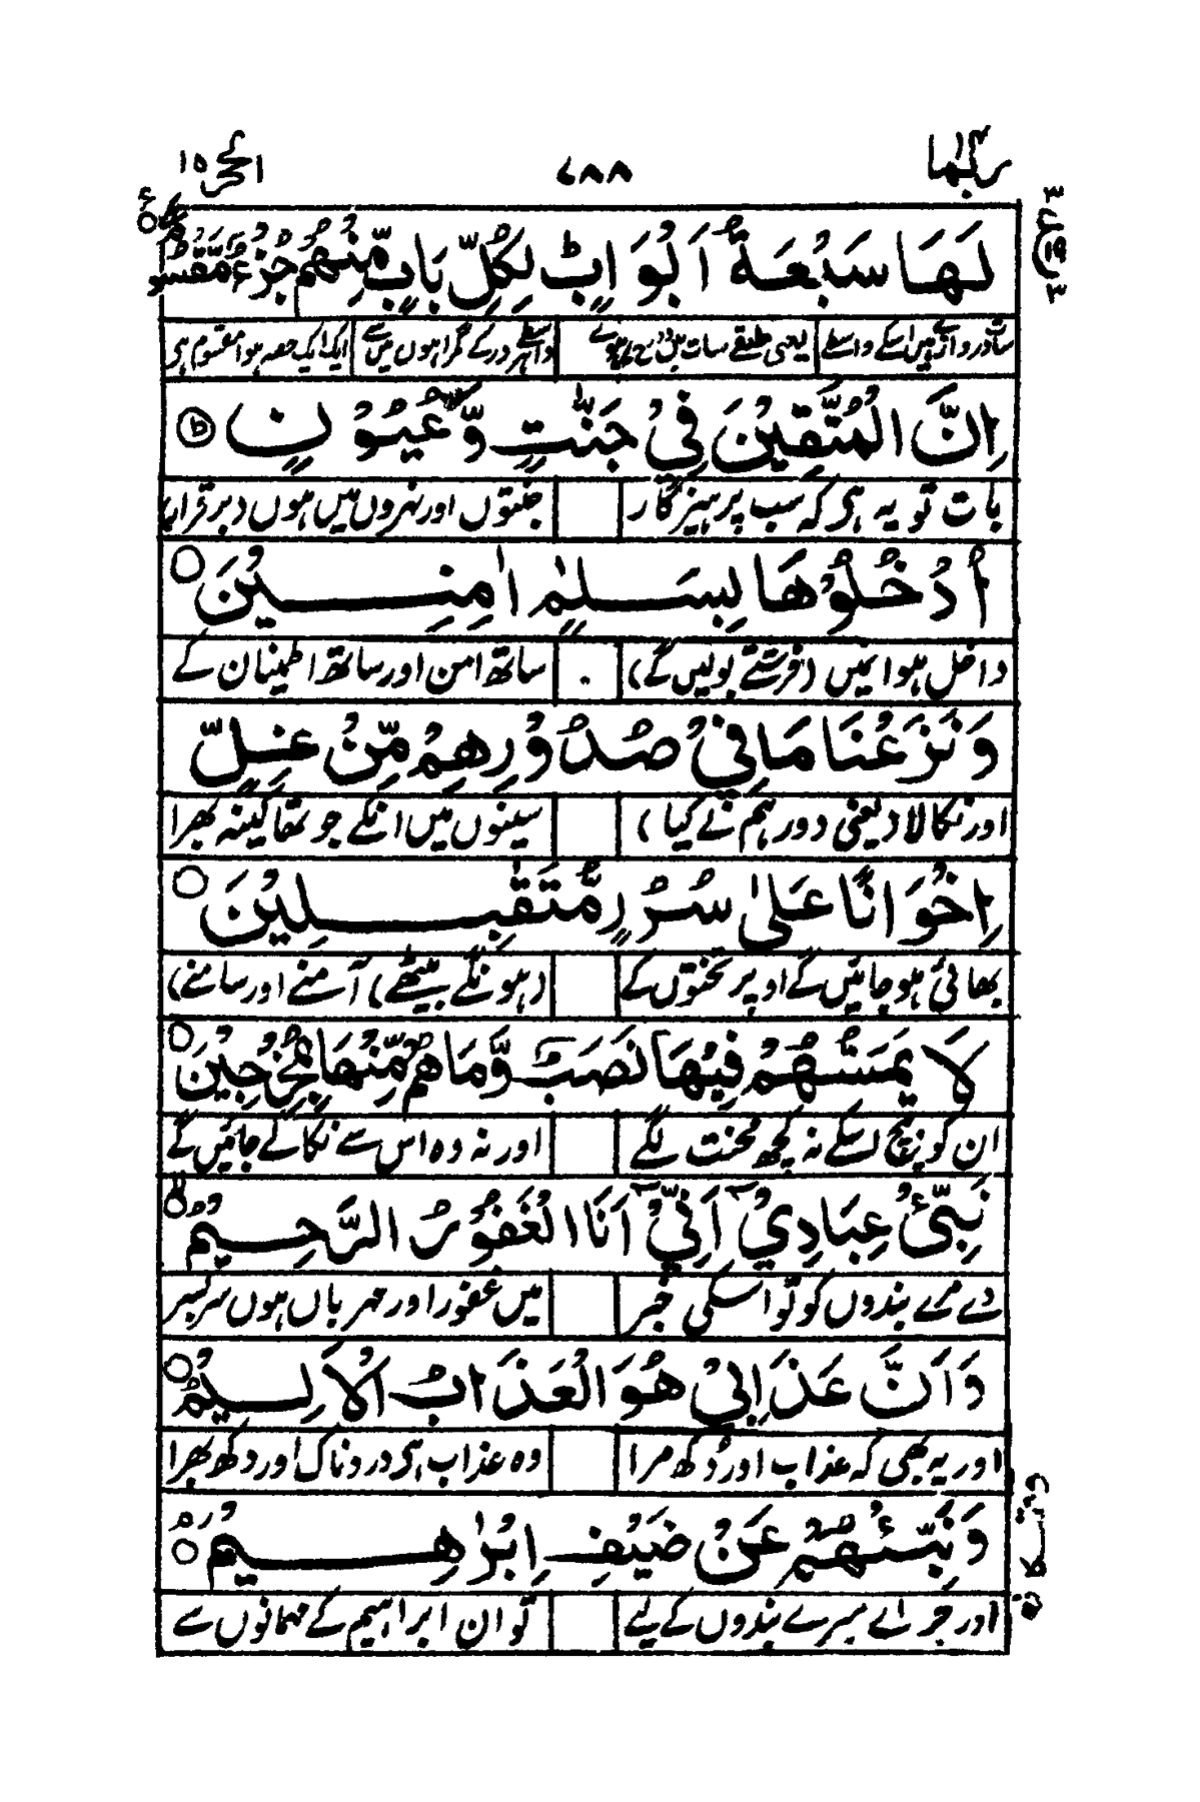 ربما ١٤ ٧٨٨ الحجر ١٥
لَهَا سَبْعَةُ اَبْوَابٍ لِكُلِّ بَابٍ مِّنْهُمْ جُزْءٌ مَّقْسُوْمٌ
سات دروازے ہیں اسکے واسطے یعنی طبقے سات ہیں واسطے ہر در کے گمراہوں میں سے ایک ایک حصہ ہوا مقسوم ہی
اِنَّ الْمُتَّقِيْنَ فِيْ جَنّٰتٍ وَّعُيُوْنٍ
بات تو یہ ہی کہ سب پرہیزگار جنتوں اور نہروں میں ہوں (برقرار)
اُدْخُلُوْهَا بِسَلٰمٍ اٰمِنِيْنَ
داخل ہو انمیں (فرشتے بولیں گے) ساتھ امن اور ساتھ اطمینان کے
وَنَزَعْنَا مَا فِيْ صُدُوْرِهِمْ مِّنْ غِلٍّ
اور نکالا (یعنی دور ہم نے کیا) سینوں میں انکے جو تھا کینہ بھرا
اِخْوَانًا عَلٰى سُرُرٍ مُّتَقٰبِلِيْنَ
بھائی ہو جائیں گے اوپر تختوں کے (ہونگے بیٹھے) آمنے اور سامنے)
لَا يَمَسُّهُمْ فِيْهَا نَصَبٌ وَّمَا هُمْ مِّنْهَا بِمُخْرَجِيْنَ
ان کو بیچ اسکے نہ کچھ محنت لگے اور نہ وہ اس سے نکالے جائیں گے
نَبِّئْ عِبَادِيْٓ اَنِّيْٓ اَنَا الْغَفُوْرُ الرَّحِيْمُ
دے مرے بندوں کو تو اسکی خبر میں غفور اور مہرباں ہوں سربسر
وَاَنَّ عَذَابِيْ هُوَ الْعَذَابُ الْاَلِيْمُ
اور یہ بھی کہ عذاب اور دکھ مرا وہ عذاب ہی دردناک اور دکھ بھرا
وَنَبِّئْهُمْ عَنْ ضَيْفِ اِبْرٰهِيْمَ
اور خبر دے میرے بندوں کے لیے تو ان ابراہیم کے مہمانوں سے